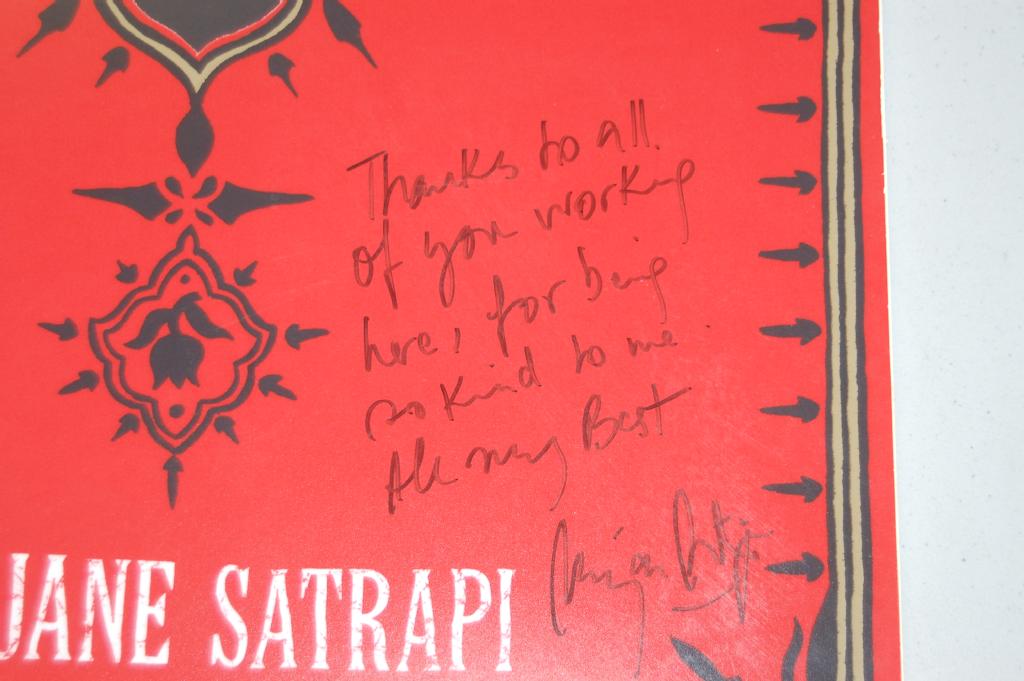 Thanks to all
of you working
here, for being
so kind to me
All my Best
Marjane Satrapi
JANE SATRAPI